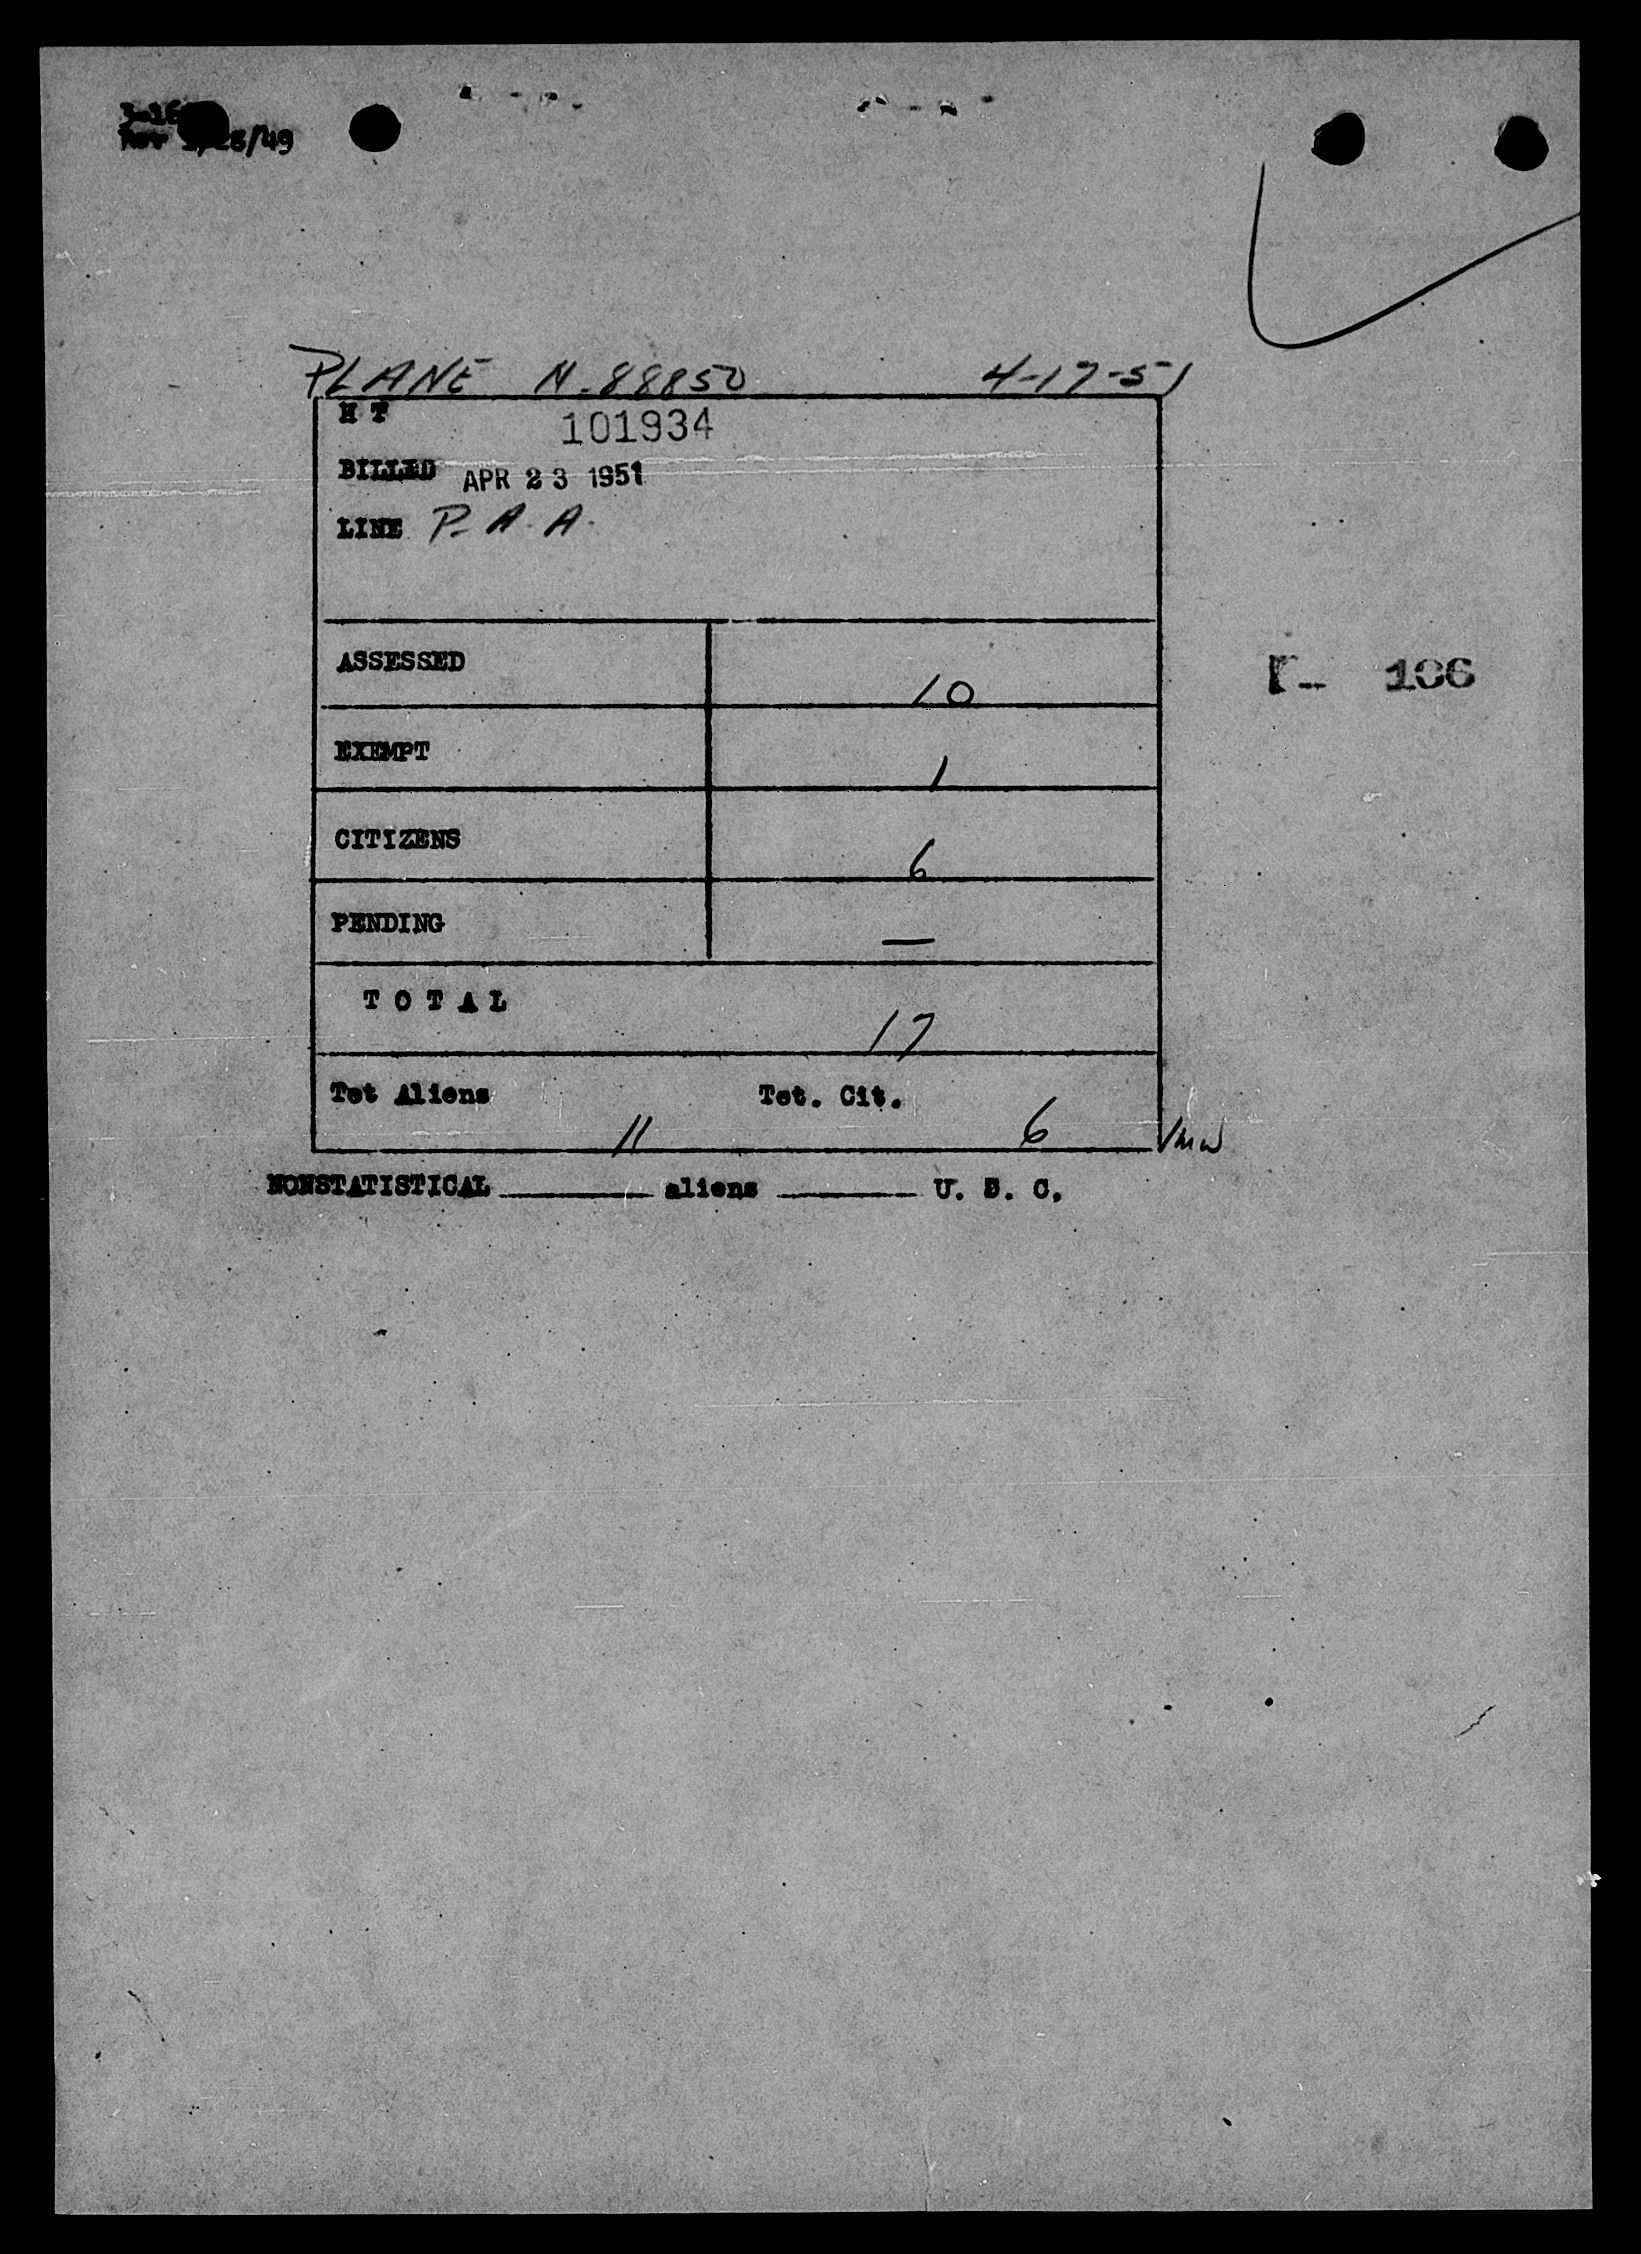 /49
PLANE N-88850 4-17-51
H T 101934
BILLED APR 23 1951
LINE P.A.A.
ASSESSED 10
I- 106
EXEMPT 1
CITIZENS 6
PENDING —
TOTAL 17
Tot Aliens 11 Tot. Cit. 6 /mw
NONSTATISTICAL ______ aliens ______ U. S. C.